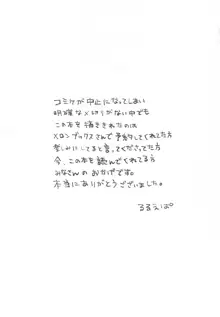 コミケが中止になってしまい
明確な〆切りがない中でも
この本を描ききれたのは
メロンブックスさんで予約してくれてた方
楽しみにしてると言ってくださってた方
今、この本を読んでくれてる方
みなさんのおかげです。
本当にありがとうございました。
るるえるぱ